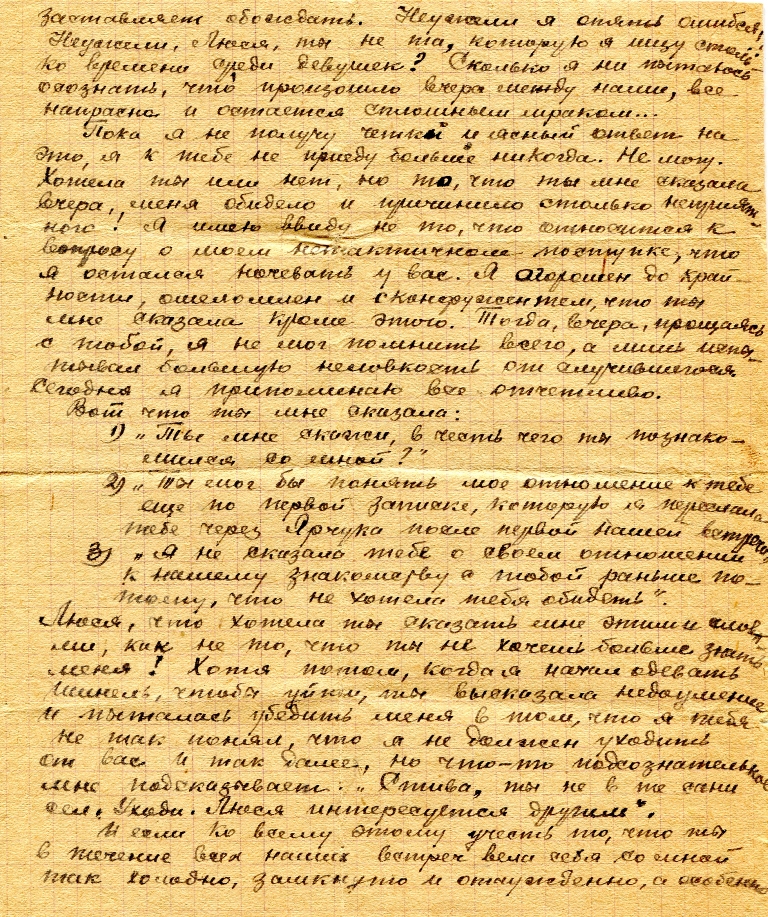 заставляет обождать. Неужели я опять ошибся?
Неужели, Люся, ты не та, которую я ищу столь-
ко времени среди девушек? Сколько я ни пытаюсь
осознать, что произошло вчера между нами, все
напрасно и остается сплошным мраком...
Пока я не получу четкий и ясный ответ на
это, я к тебе не приеду больше никогда. Не могу.
Хотела ты или нет, но то, что ты мне сказала
вчера, меня обидело и причинило столько неприят-
ного! Я имею ввиду не то, что относится к
вопросу о моем нетактичном поступке, что
я остался ночевать у вас. Я огорошен до край-
ности, ошеломлен и сконфужен тем, что ты
мне сказала кроме этого. Тогда, вчера, прощаясь
с тобой, я не мог помнить всего, а лишь испы-
тывал большую неловкость от случившегося.
Сегодня я припоминаю все отчетливо.
Вот что ты мне сказала:
1) „Ты мне скажи, в честь чего ты познако-
мился со мной?"
2) „Ты мог бы понять мое отношение к тебе
еще по первой записке, которую я переслала
тебе через Ярчука после первой нашей встречи"
3) „Я не сказала тебе о своем отношении
к нашему знакомству с тобой раньше по-
тому, что не хотела тебя обидеть".
Люся, что хотела ты сказать мне этими слова-
ми, как не то, что ты не хочешь больше знать
меня! Хотя потом, когда я начал одевать
шинель, чтобы уйти, ты высказала недоумение
и пыталась убедить меня в том, что я тебя
не так понял, что я не должен уходить
от вас и так далее, но что-то подсознательное
мне подсказывает: „Стива, ты не в те сани
сел. Уходи. Люся интересуется другим".
И если ко всему этому учесть то, что ты
в течение всех наших встреч вела себя со мной
так холодно, замкнуто и отчужденно, а особенно